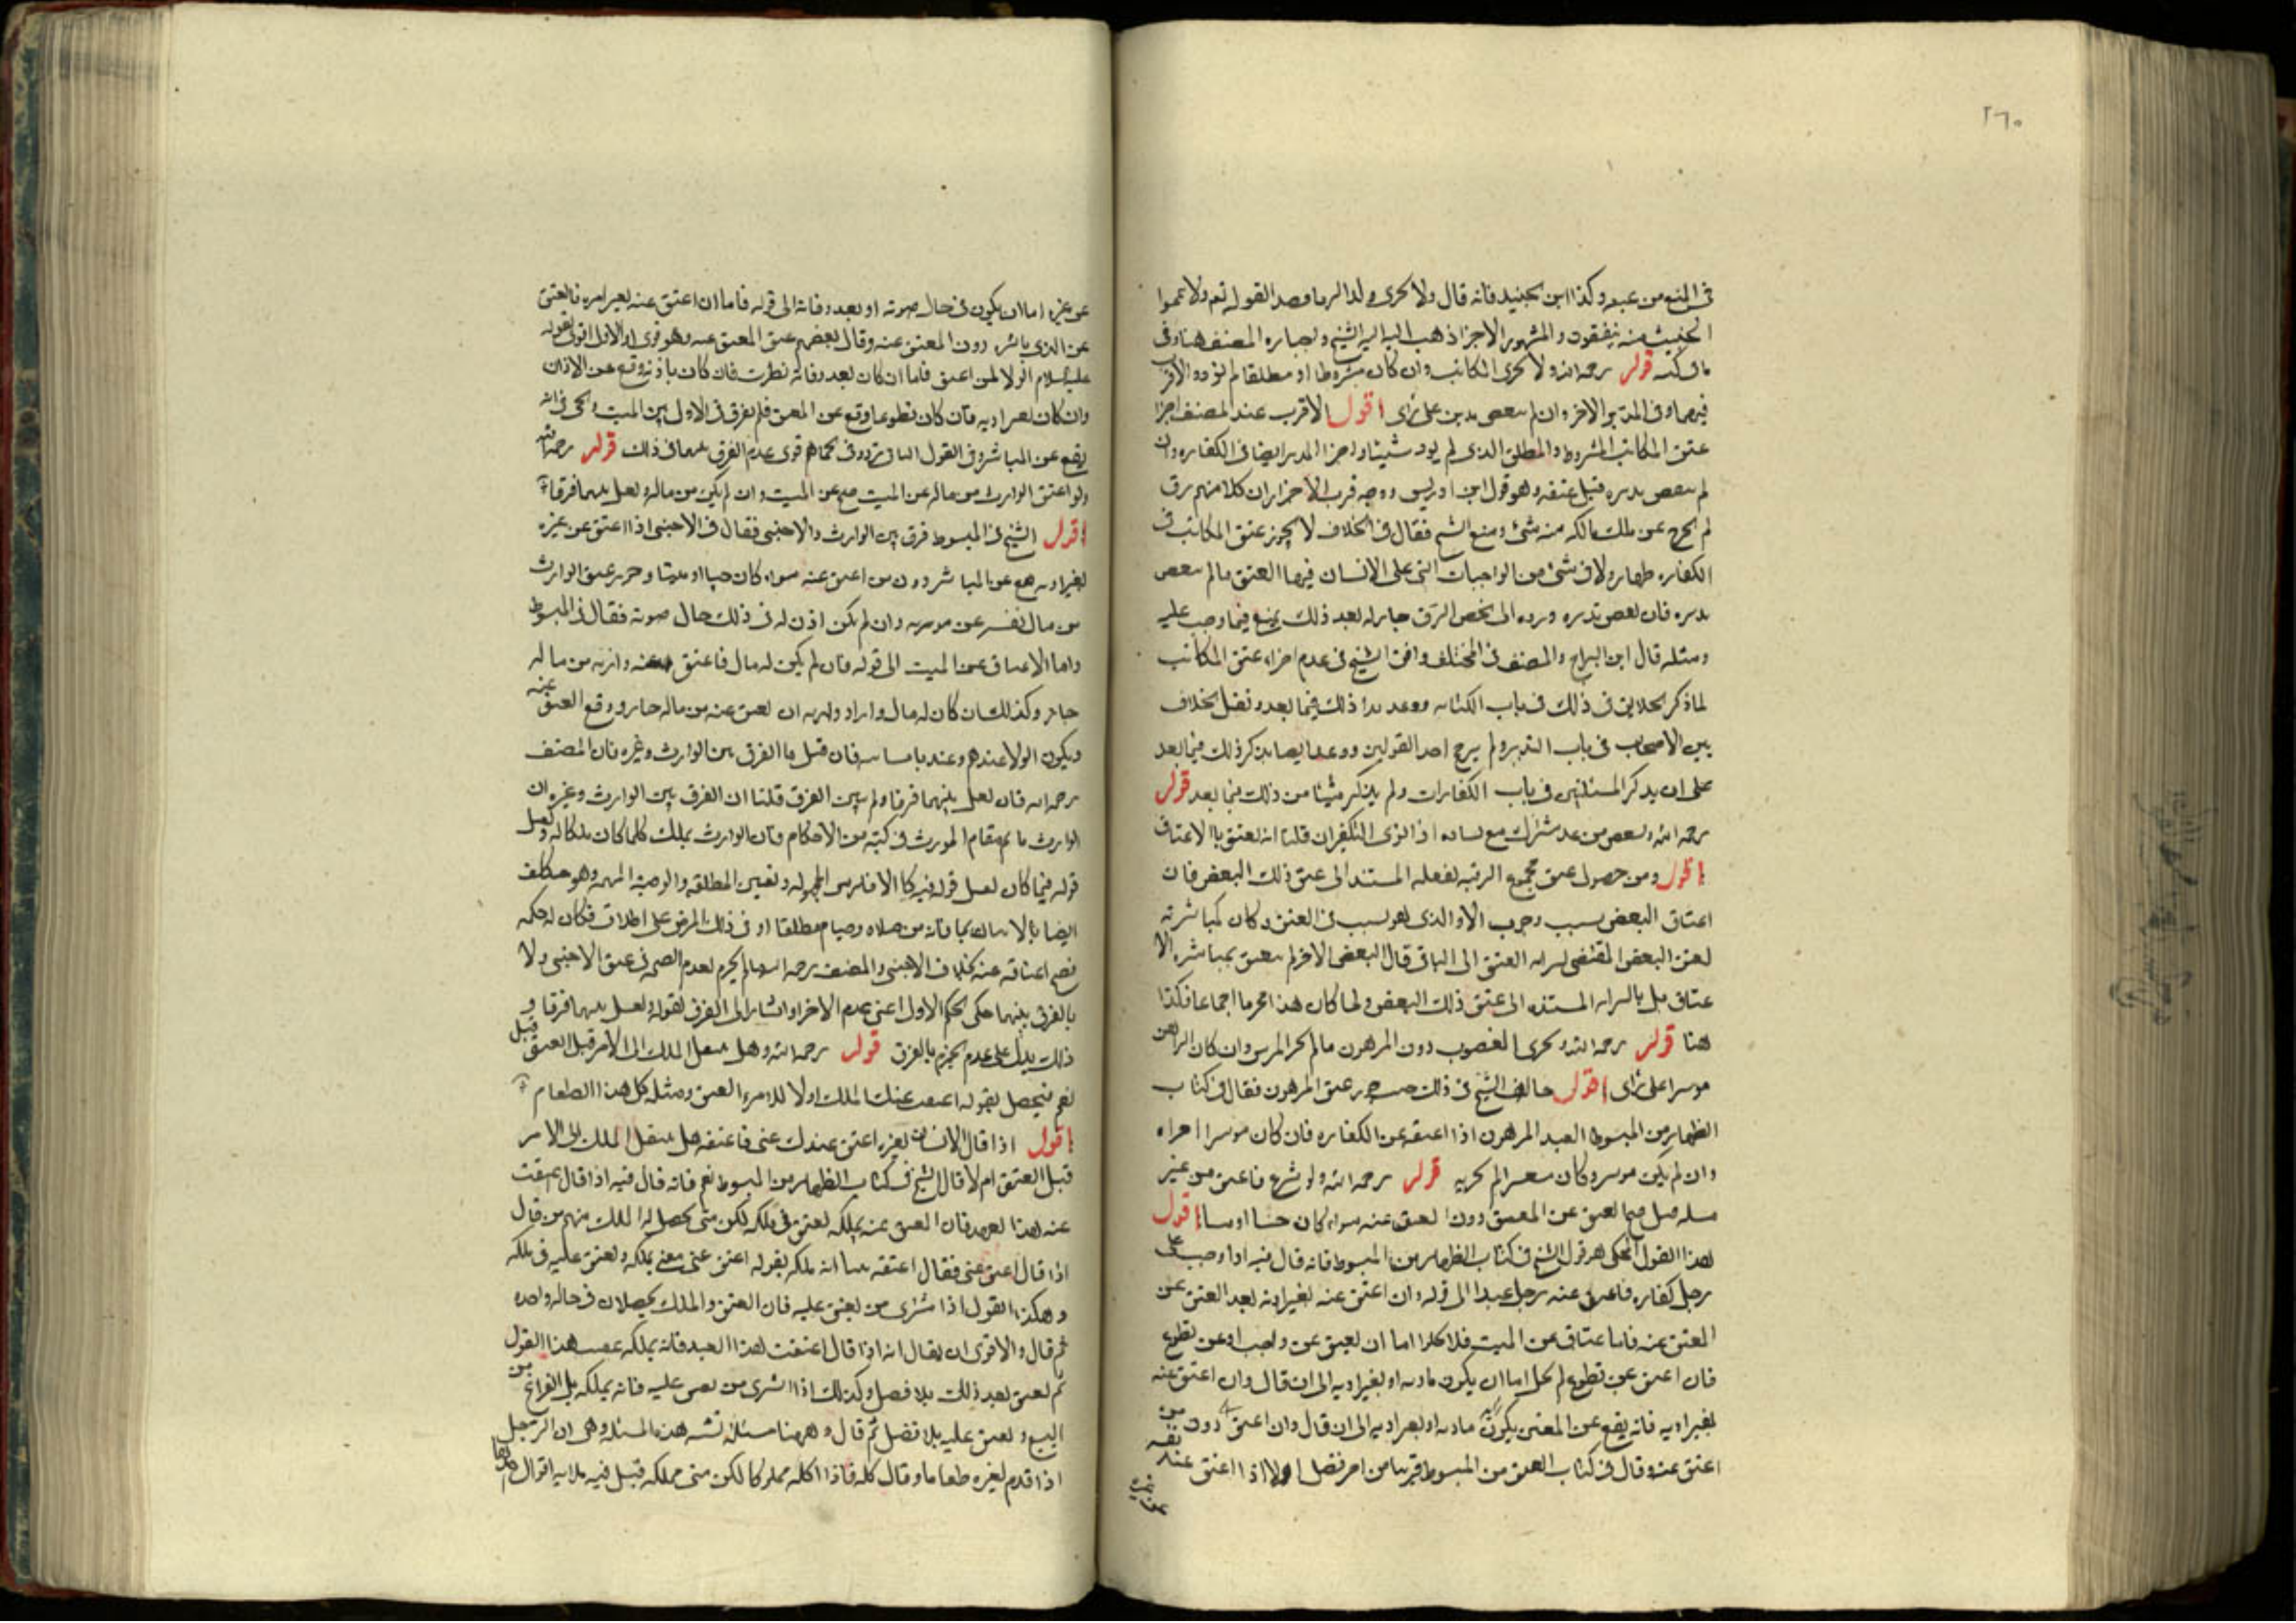 ٢٦٠
في المنع من عبيد وكذا ابن الجنيد فانه قال ولا يجزي ولد الزنا وقصد القوله تعم ولا تيمموا
الخبيث منه تنفقون والمشهور الاجزا ذهب اليه الشيخ واختاره المصنف هنا وفي
باقي كتبه قوله رحمه الله ولا يجزي المكاتب وان كان مشروطا او مطلقا لم يؤد والاقرب
فيهما وفي المدبر الاجزا وان لم ينقض تدبيره على راى اقول الاقرب عند المصنف اجزا
عتق المكاتب المشروط والمطلق الذي لم يود شيئا واجزا المدبر ايضا في الكفاره وان
لم ينقض تدبيره قبل عتقه وهو قول ابن ادريس ووجه قرب الاجزا ان كلا منهم رق
لم يخرج عن ملك مالكه منه شئ ومنع الشيخ فقال في الخلاف لا يجوز عتق المكاتب في
الكفاره ولا في شئ من الواجبات التي على الانسان فيها العتق مالم ينقض
تدبيره فان نقض تدبيره ورده الى محض الرق جاز له بعد ذلك فيما وجب عليه
ومثله قال ابن البراج والمصنف في المختلف وافق الشيخ في عدم اجزاء عتق المكاتب
لما ذكر الخلاف في ذلك في باب الكتابه ووعد بذا ذلك فيما بعد ونقل الخلاف
بين الاصحاب في باب التدبير ولم يرجح احد القولين ووعد ايضا بذكر ذلك فيما بعد
على ان يذكر المسئلتين في باب الكفارات ولم يذكر شيئا من ذلك فيما بعد قوله
رحمه الله وبعض من عبد مشترك مع يساره اذا نوى التكفير ان قلنا انه يعتق بالاعتاق
اقول ومن حصول عتق مجموع الرقبه لفعله المستند الى عتق ذلك البعض فان
اعتاق البعض سبب وجوب الاداء الذي هو سبب في العتق وكان كمباشرته
لعتق البعض المقتضي لسرايه العتق الى الباقي قال البعض الاخر لم يعتق بمباشره الا
عتاق بل بالسرايه المستنده الى عتق ذلك البعض ولما كان هذا مجزيا اجماعا فكذا
هنا قوله رحمه الله ويجزي المغصوب دون المرهون مالم يجز المرتهن وان كان الراهن
موسرا على راى اقول خالف الشيخ في ذلك حيث جوز عتق المرهون فقال في كتاب
الظهار من المبسوط العبد المرهون اذا اعتقه عن الكفاره فان كان موسرا اجزاه
وان لم يكن موسر وكان معسرا لم يجزيه قوله رحمه الله ولو تبرع فاعتق من غير
مسئله قيل صح العتق عن المعتق دون المعتق عنه سواء كان حيا او ميتا اقول
هذا القول المحكي هو قول الشيخ في كتاب الظهار من المبسوط فانه قال فيه اذا وجب على
رجل كفاره فاعتق عنه رجل عبدا الى قوله وان اعتق عنه لغير اذنه يعد العتق عن
المعتق عنه فاما عتاق عن الميت فلا يخلوا اما ان يعتق عن واجب او عن تطوع
فان اعتق عن تطوع لم يخل اما ان يكون باذنه او بغير اذنه الى ان قال وان اعتق عنه
بغير اذنه فانه يقع عن المعتق يكون باذنه او بغير اذنه الى ان قال وان اعتق دون من
اعتق عنه وقال في كتاب العتق من المبسوط قريبا من اخر فصل الولا اذا اعتق عند نفسه
عن غيره
عن غيره اما ان يكون في حال حيوته او بعد وفاته الى قوله فاما ان اعتق عنه بغير امره فالعتق
عن الذي باشره دون المعتق عنه وقال بعضهم عتق المعتق عنه وهو قوي والاول اقوى لقوله
عليه السلام الولا لمن اعتق فاما ان كان بعد وفاته نظرت فان كان باذنه وقع عن الاذن
وان كان بغير اذنه فان كان تطوعا وقع عن المعتق فلم يفرق في الاول بين الميت والحي في انه
يقع عن المباشر وفي القول الثاني تردد في حكمهما ثم قوى عدم الفرق بينهما في ذلك قوله رحمه الله
ولو اعتق الوارث من ماله عن الميت صح عن الميت وان لم يكن من ماله ولعل بينهما فرقا
اقول الشيخ في المبسوط فرق بين الوارث والاجنبي فقال في الاجنبي اذا اعتق عن غيره
بغير اذنه صح عن المباشر دون من اعتق عنه سواء كان حيا او ميتا وجوز عتق الوارث
من مال نفسه عن مورثه وان لم يكن اذن له في ذلك حال حيوته فقال في المبسوط
واما الاعتاق عن الميت الى قوله فان لم يكن له مال فاعتق عنه وارثه من ماله
جاز وكذلك ان كان له مال واراد وارثه ان يعتق عنه من ماله جاز ووقع العتق عنه
ويكون الولا عندهم وعندنا سائبه فان قيل ما الفرق بين الوارث وغيره فان المصنف
رحمه الله قال لعل بينهما فرقا ولم يبين الفرق قلنا ان الفرق بين الوارث وغيره ان
الوارث قائم مقام المورث في كثير من الاحكام فان الوارث يملك كلما كان يملكا له ويعمل
قوله فيما كان يعمل قوله فيه كالاقرار المجهوله وتعيين المطلقه والوصيه المبهمه وهو مكلف
ايضا بالاتيان بما فاته من صلاه وصيام مطلقا او في ذلك المرض على اطلاق فكان له حكمه
فصح اعتاقه عنه بخلاف الاجنبي والمصنف رحمه الله لم يجزم بعدم الصحه في عتق الاجنبي ولا
بالفرق بينهما حكى الحكم الاول اعني عدم الاجزا واشار الى الفرق بقوله ولعل بينهما فرقا و
ذلك يدل على عدم الجزم بالفرق قوله رحمه الله وهل ينتقل الملك الى الامر قبل العتق قيل
نعم فيحصل بقوله اعتقت عنك الملك اولا للامر ثم العتق ومثله كل هذا الطعام
اقول اذا قال الانسان لغيره اعتق عبدك عني فاعتقه هل ينتقل الملك الى الامر
قبل العتق ام لا قال الشيخ في كتاب الظهار من المبسوط نعم فانه قال فيه اذا قال اعتقت
عنه هذا العبد فان العتق عنه يملكه يعتق في ملكه لكن متى يحصل له الملك منهم من قال
اذا قال اعتق عني فقال اعتقته بينا انه ملكه بقوله اعتق عني معنى يملكه ويعتق عليه في ملكه
وهكذا القول اذا اشترى من يعتق عليه فان العتق والملك يحصلان في حاله واحده
ثم قال والاقوى ان يقال انه اذا قال اعتقت هذا العبد فانه يملكه عقيب هذا القول
ثم يعتق بعد ذلك بلا فصل وكذلك اذا اشترى من يعتق عليه فانه يملكه بالفراغ من
البيع ويعتق عليه بلا فصل ثم قال وههنا مسئله تشبه هذه المسئله وهي ان الرجل
اذا قدم لغيره طعاما وقال كله فاذا اكله مملوكا لكن متى يملكه قيل فيه ثلاثه اقوال